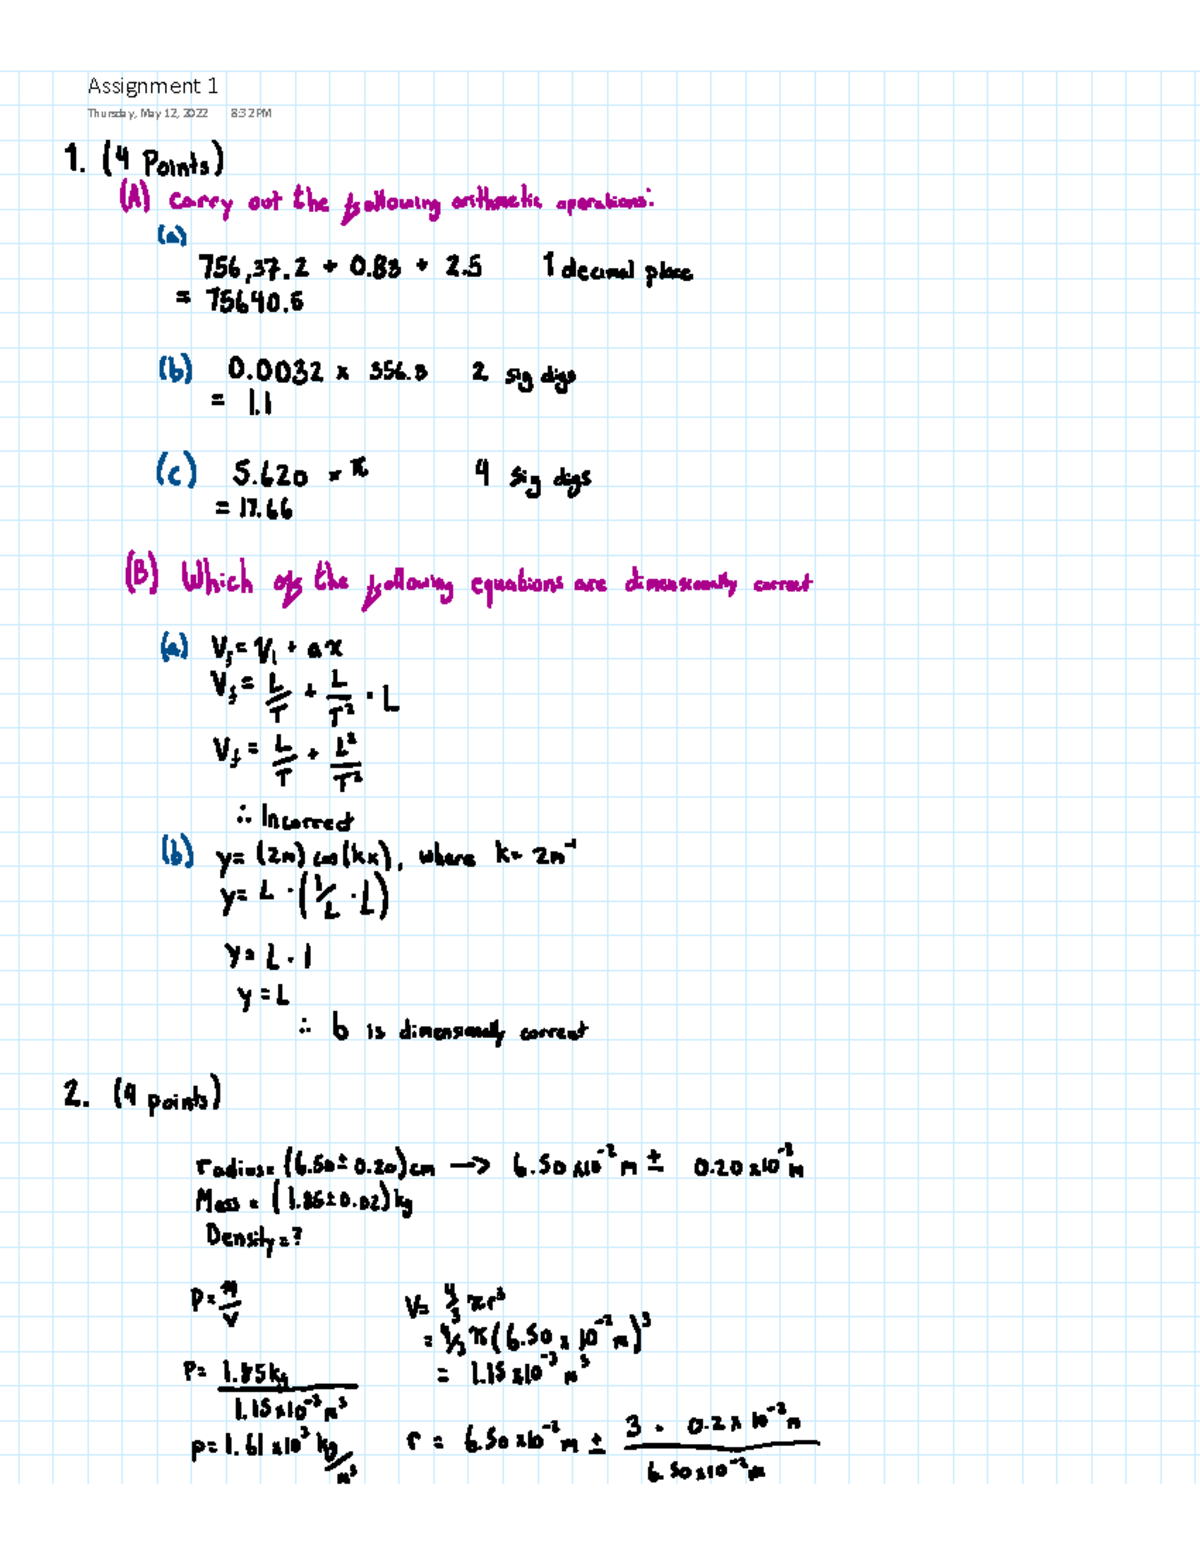 Assignment 1
Thursday, May 12, 2022 8:32 PM
1. (4 Points)
(A) Carry out the following arithmetic operations:
(a)
756,37.2 + 0.83 + 2.5 1 decimal place
= 75640.5
(b) 0.0032 x 356.3 2 sig digs
= 1.1
(c) 5.620 × π 4 sig digs
= 17.66
(B) Which of the following equations are dimensionally correct
(a) Vf = Vi + ax
Vf = L/T + L/T² · L
Vf = L/T + L²/T²
∴ Incorrect
(b) y = (2m) cos(kx), where k = 2m⁻¹
y = L · (1/L · L)
y = L · 1
y = L
∴ b is dimensionally correct
2. (4 points)
radius = (6.50 ± 0.20) cm → 6.50 x10⁻² m ± 0.20 x10⁻² m
Mass = (1.85 ± 0.02) kg
Density = ?
P = m/V V = 4/3 πr³
= 4/3 π(6.50 x 10⁻² m)³
P = 1.85 kg / 1.15 x10⁻³ m³ = 1.15 x10⁻³ m³
p = 1.61 x10³ kg/m³ r = 6.50 x10⁻² m ± 3 · 0.2 x 10⁻² m / 6.50 x10⁻² m